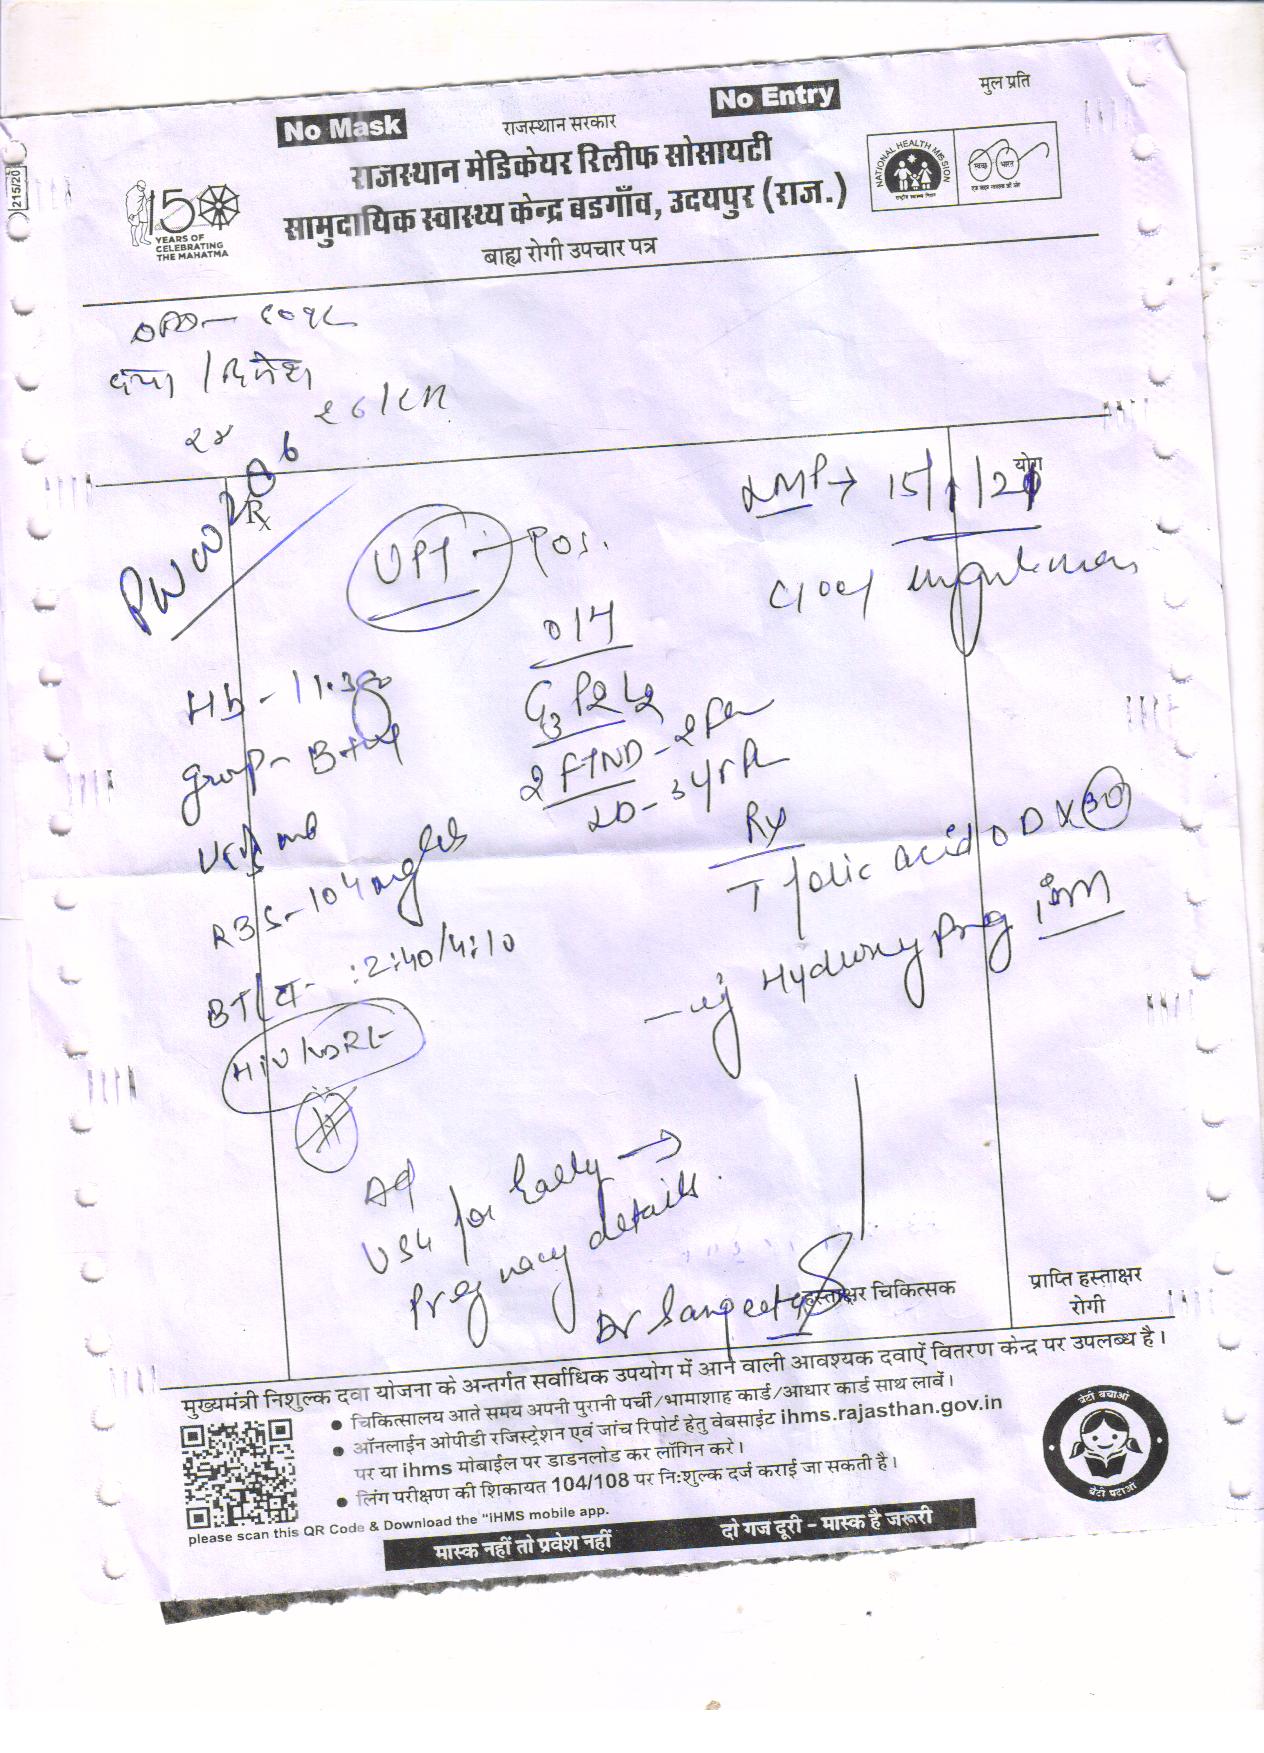 No Mask
No Entry
मुल प्रति
राजस्थान सरकार
राजस्थान मेडिकेयर रिलीफ सोसायटी
सामुदायिक स्वास्थ्य केन्द्र बडगाँव, उदयपुर (राज.)
बाह्य रोगी उपचार पत्र
215/20
150
YEARS OF
CELEBRATING
THE MAHATMA
NATIONAL HEALTH MISSION
राष्ट्रीय स्वास्थ्य मिशन
स्वच्छ भारत
एक कदम स्वच्छता की ओर
/ दिनेश
२४
Rx
योग
LMP → 15/1/21
UPT - Pos.
c/o of
O/H
G3P2L2
2 FTND - 2
LD - 3 yr
Hb - 11.3g
group - B+ve
RBS - 104 mg
BT/CT - : 2:40/4:10
HIV/VDRL -
Rx
T folic acid OD X 30
Inj Hydroxy Prog im
Adv
USG for Early →
Pregnacy details.
Dr Sangeeta
हस्ताक्षर चिकित्सक
प्राप्ति हस्ताक्षर
रोगी
मुख्यमंत्री निशुल्क दवा योजना के अन्तर्गत सर्वाधिक उपयोग में आने वाली आवश्यक दवाऐं वितरण केन्द्र पर उपलब्ध है।
● चिकित्सालय आते समय अपनी पुरानी पर्ची/भामाशाह कार्ड/आधार कार्ड साथ लावें।
● ऑनलाईन ओपीडी रजिस्ट्रेशन एवं जांच रिपोर्ट हेतु वेबसाईट ihms.rajasthan.gov.in
पर या ihms मोबाईल पर डाडनलोड कर लॉगिन करे।
● लिंग परीक्षण की शिकायत 104/108 पर निःशुल्क दर्ज कराई जा सकती है।
please scan this QR Code & Download the "iHMS mobile app.
मास्क नहीं तो प्रवेश नहीं
दो गज दूरी - मास्क है जरूरी
बेटी बचाओ
बेटी पढाओ